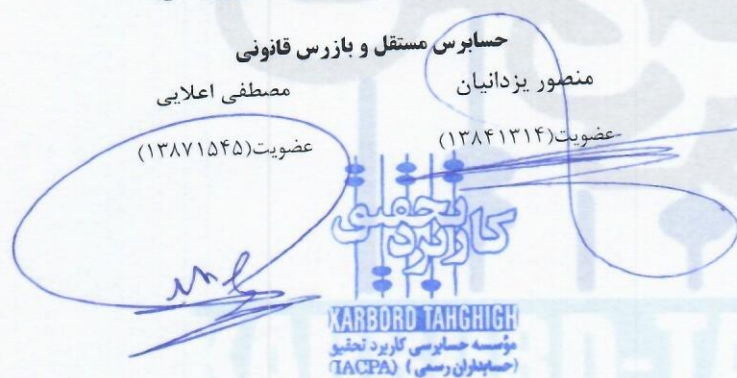 حسابرس مستقل و بازرس قانونی
منصور یزدانیان
مصطفی اعلایی
عضویت(۱۳۸۴۱۳۱۴)
عضویت(۱۳۸۷۱۵۴۵)
کاربرد تحقیق
KARBORD TAHGHIGH
مؤسسه حسابرسی کاربرد تحقیق
(حسابداران رسمی) (IACPA)